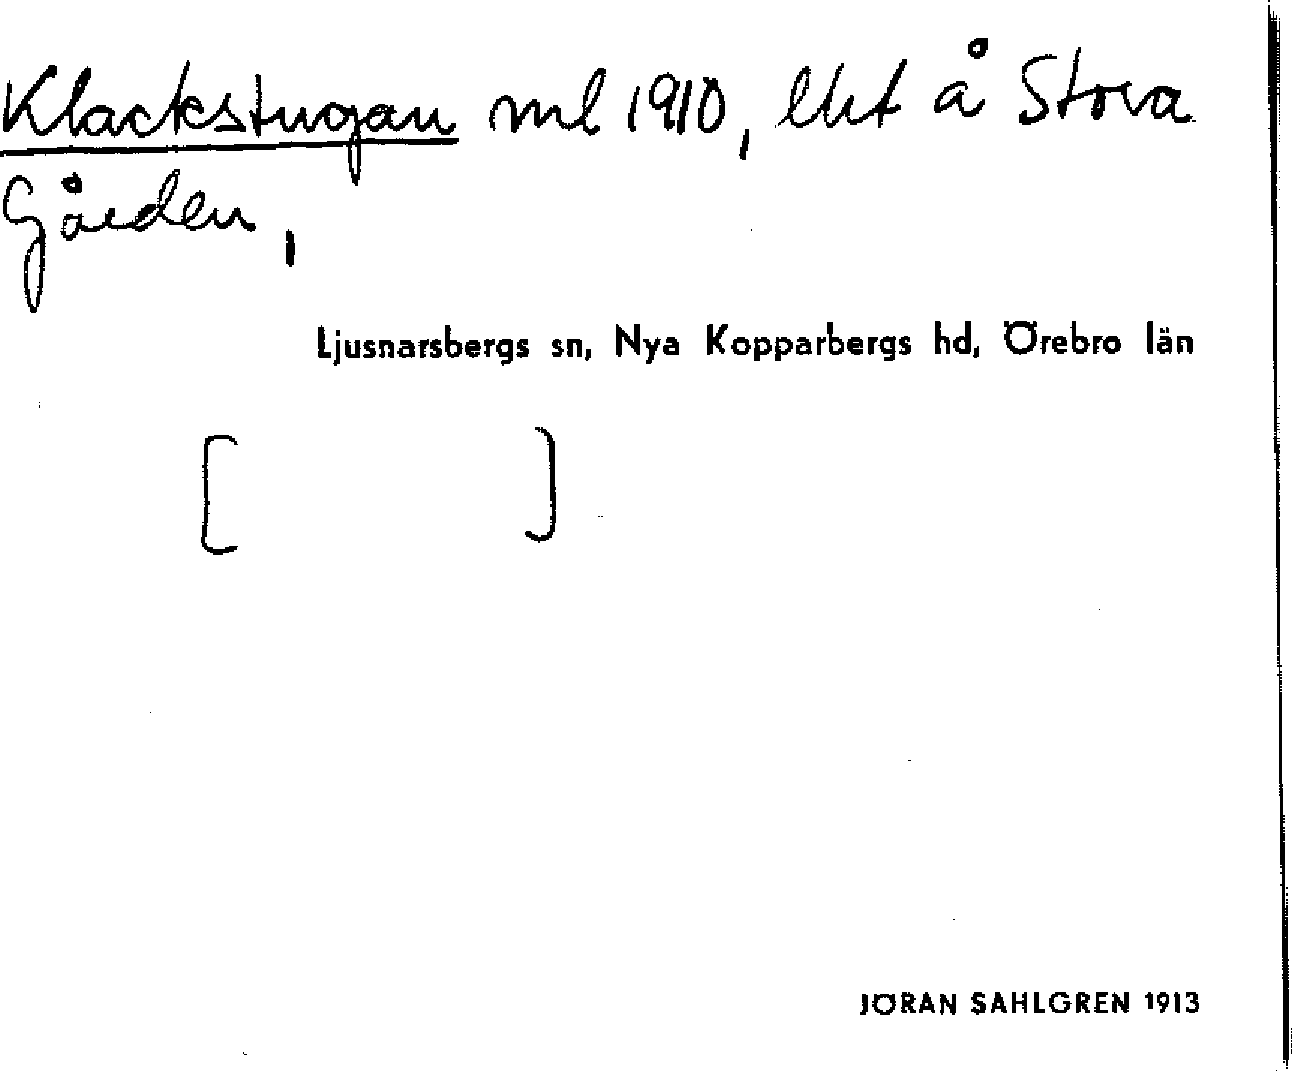 Klackstugan ml 1910, lht å Stora
Gården,
Ljusnarsbergs sn, Nya Kopparbergs hd, Örebro län
[ ]
JÖRAN SAHLGREN 1913